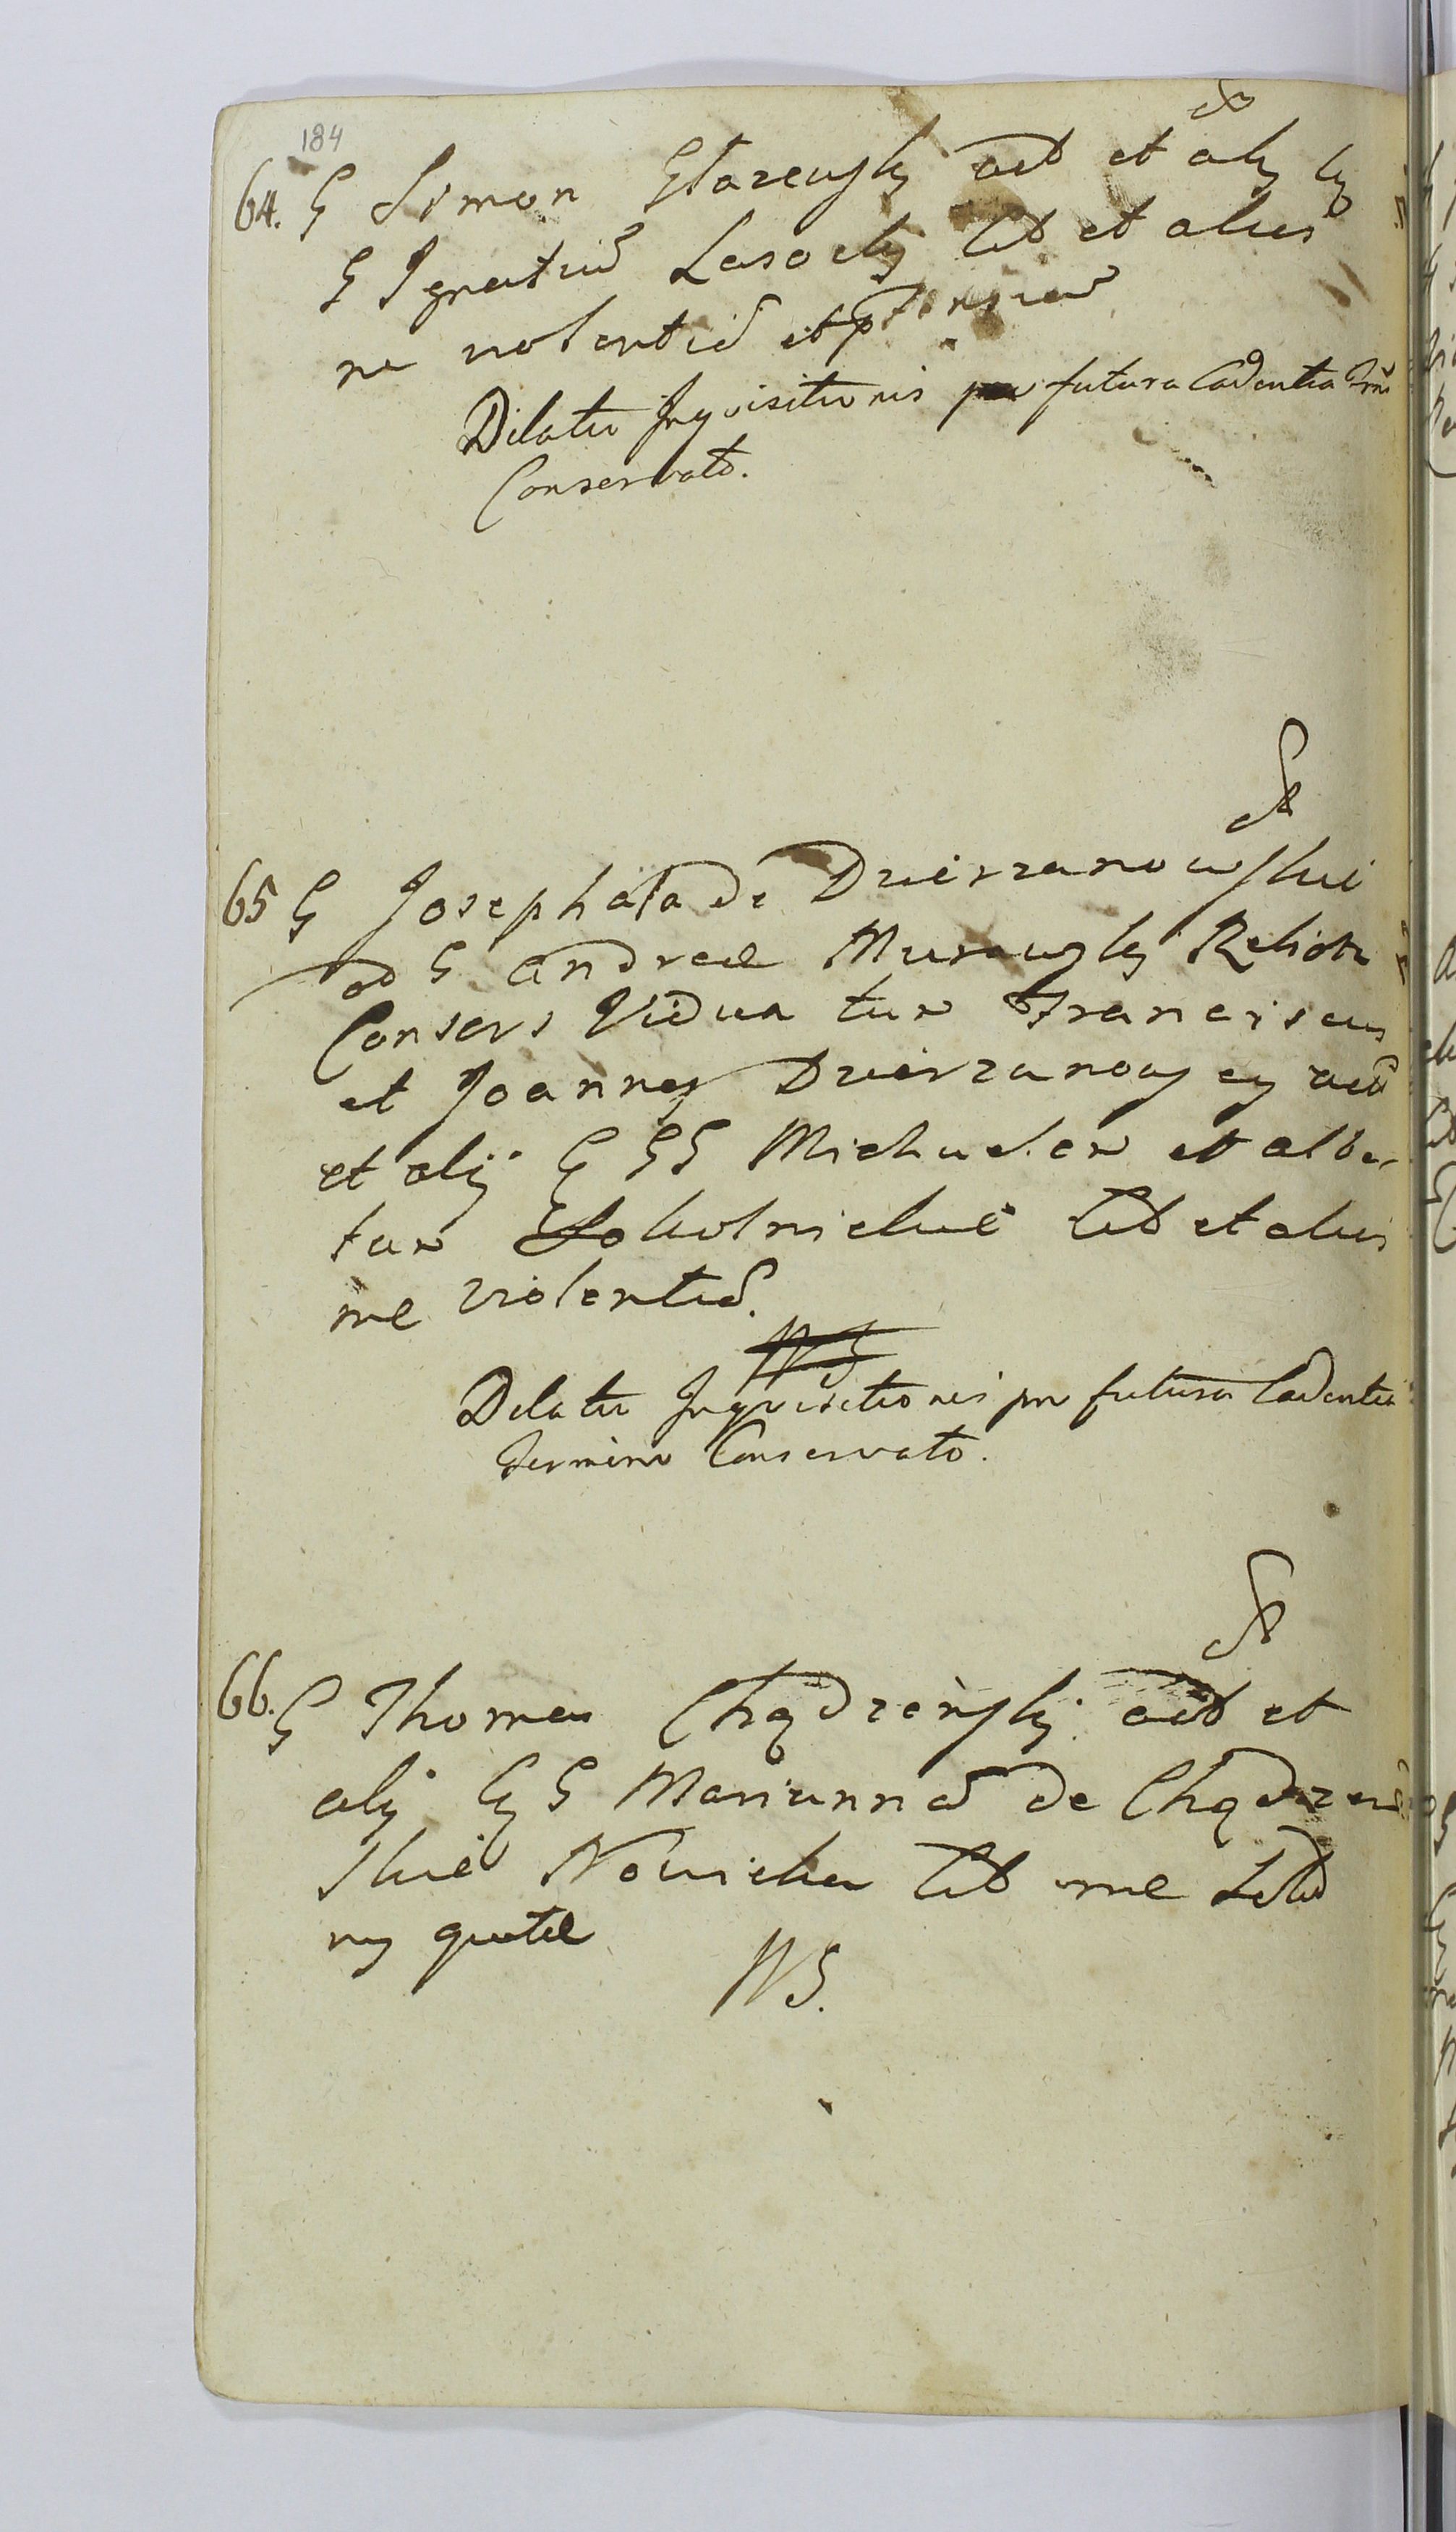 184
64. G Simon Starensky act et alij Cy
G Ignatiu Lasocky Cit et alies
ne violentia et
Dilatio Inquisitionis pro futura Cadentia Trno
Conservato.
65 G Josephata de Dzierzanowskie
od G Andreae Murawsky Relicta
Consors Vidua tum Franciscus
et Joannes Dzierzanowscy act
et alij Cy GG Michaelem et Alber
tum Sokolnickie Cit et alies
me violentia.
NS
Dilatio Inquisitionis pro futura Cadentia
Termino Conservato.
66. G Thomas Chądzeński act et
alij Cy G Mariannam de Chądzeń
skie Nowicka Cit me
ny quotae
NS.